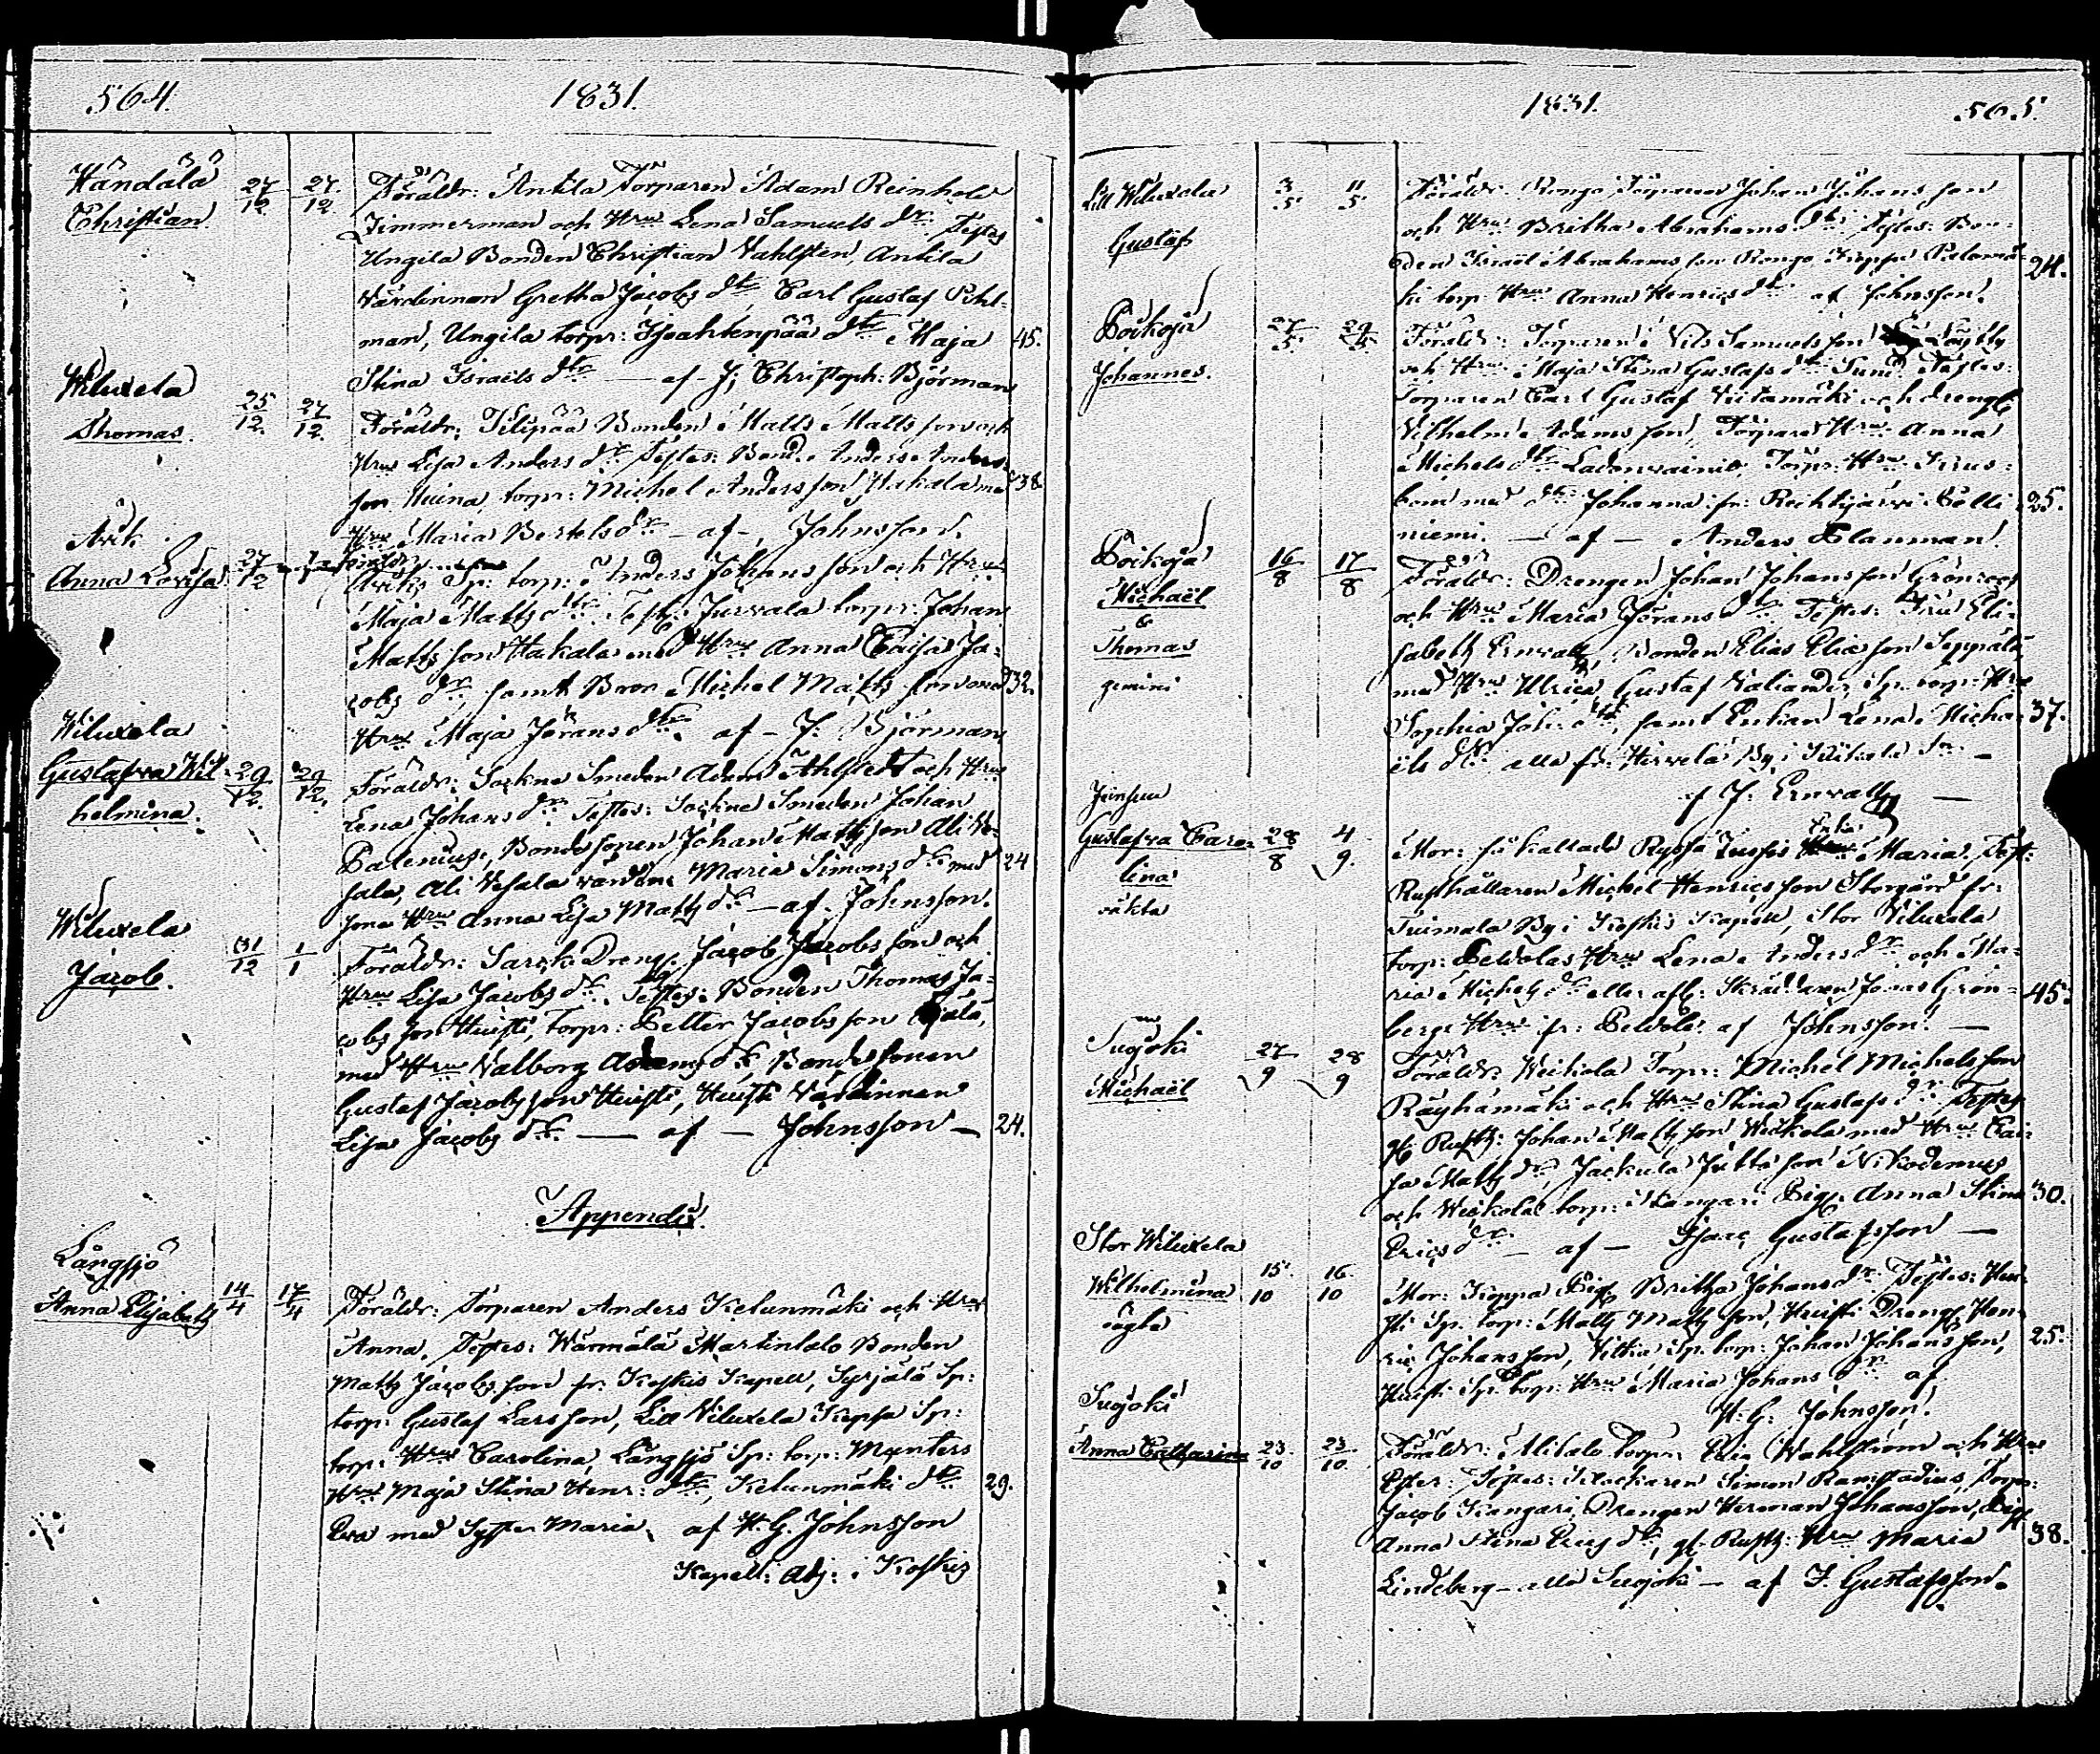 564.
1831.
Händälä
Christian
27/12
27/12
Föräldr: Antila Torparen Adam Reinhold
Zimmerman och Hru Lena Samuels dr. Testes
Ungila Bonden Christian Vahlsten, Antila
Värdinnan Gretha Jacobs dtr, Carl Gustaf Pihl-
man, Ungila torpr: Isoahtenpää dtr Maja
Stina Israels dtr — af J. Christoph: Björman
45.
Wiluxela
Thomas.
25/12
27/12
Föräldr: Filipää Bonden Matts Matts son och
Hru Lisa Anders dr Testes: Bond. Anders Anders-
son Huina, torpr: Michel Anders son Hakala med
Hru Maria Bertels dr — af — Johnsson.
38
Arik
Anna Lovisa
27/12
Sp: torp: Anders Johans son och Hru
Maja Matts dtr. Test: Jurvala torpr: Johan
Matts son Hakala med Hru Anna Caisa Ja-
cobs dr. samt Bror Michel Matts son och
Hru Maja Jörans dtr. af — J. Björman
32.
Wiluxela
Gustafva Wil-
helmina.
29/12
29/12
Föräldr: Sockne Smeden Adam Ahlstedt och Hru
Lena Johans dr Testes: Sockne Smeden Johan
Palenius, Bonde sonen Johan Matts son Ali Ve-
sala, Ali Vesala värdin: Maria Simons dr med
sone Hru Anna Lisa Matts dr — af. Johnsson.
24
Wiluxela
Jacob.
31/12
1/1
Föräldr: Dreng. Jacob Jacobs son och
Hru Lisa Jacobs dr. Testes: Bonden Thomas Ja-
cobs son Huisti, Torpr: Petter Jacobs son
med Hru Valborg Adams dr Bonde sonen
Gustaf Jacobs son Huisti, Huisti Värdinnan
Lisa Jacobs dr. — af — Johnsson —
24.
Appendix.
Långsjö
Anna Elisabeth
14/4
17/4
Föräldr: Torparen Anders Kelunmäki och Hru
Anna. Testes: Wärmälä Martintalo Bonden
Matts Jacobs son fr: Koskis Kapell, Syrjälä Sp:
torp: Gustaf Larsson, Lill Viluxela Keppa Sp:
torp: Hru Carolina, Långsjö Sp: torp: Munters
Hru Maja Stina Henr: dtr, Kelunmäki dtr
Eva med Syster Maria, af H. G. Johnsson
Kapell: Adj: i Koskis
29.
1831.
565.
Lill Wiluxela
Gustaf
3/5
11/5
Föräldr: Rongo Torparen Johan Johans son
och Hru Britha Abrahams dtr Testes: Bon-
den Israël Abrahams son Rongo,
torp: Hru Anna Henrics dtr af Johnsson.
24.
Poikoja
Johannes.
27/5
29/5
Föräldr: Torparen Nils Samuels son Löytty
och Hru Maja Stina Gustafs dtr Sund. Testes:
Torparen Carl Gustaf Viitamäki och drengen
Wilhelm Adams son, Torpare Hru Anna
Michels dtr Ladonvainio Torpr: Hru Krus-
bom med dtr Johanna fr: Rechtijärvi Pelli-
niemi. — af — Anders Blauman
25.
Poikoja
Michaël
&
Thomas
gemini
16/8
17/8
Föräldr: Drengen Johan Johans son Grönroos
och Hru Maria Jörans dtr. Testes: Fru Eli-
sabeth Ervall, Bonden Elias Elias son Seppälä
med Hru Ulrica, Gustaf Valiander, Sp: torp: Hru
Sophia Joh: dtr, samt Enkan Lena Micha-
ëls dtr alla fr: Hirvelä By i Kiikala Sn. —
af J: Ervall —
37.
Gustafva Caro-
lina
oäkta
28/8
4/9.
Mor: så kallade Ryssä Jussis Enka Maria. Test:
Rusthållaren Michel Henrics son Storgård fr:
Tuimala By i Koskis Kapell, Stor Viluxela
torp: Hru Lena Anders dr. och Ma-
ria Michels dr eller afl: Skräddaren Jonas Grön-
bergs Hru fr: af Johnsson. —
45.
Suojoki
Michaël
27/9
28/9
Föräldr: Weikola Torpr: Michel Michels son
Räyhämäki och Hru Stina Gustafs dr. Testes
gl Rusth: Johan Matts son Weikola med Hru Cai-
sa Matts dr, Nikodemus
och Weikola torp: Kangari Pig: Anna Stina
Erics dr — af — Isaac Gustafsson —
30.
Stor Wiluxela
Wilhelmina
oägta
15/10
16/10
Mor: Koppa Pig: Britha Johans dr. Testes: Hui-
sti Sp: torp: Matts Matts son, Huisti Dreng Hen-
ric Johansson, Sp: torp: Johan Johans son,
Huisti Sp: torp: Hru Maria Johans dr. af
H. G. Johnsson.
25.
Suojoki
Anna Catharina
23/10
25/10
Föräldr: Alitalo Torpr: Eric Wahlström och Hru
Ester. Testes: Klockaren Simon Ramstadius, Torpr:
Jacob Kangari, Drengen Herman Johansson, Pig:
Anna Stina Erics dtr, gl. Rusth: Hru Maria
Lindeberg — alla Suojoki — af I. Gustafsson.
38.